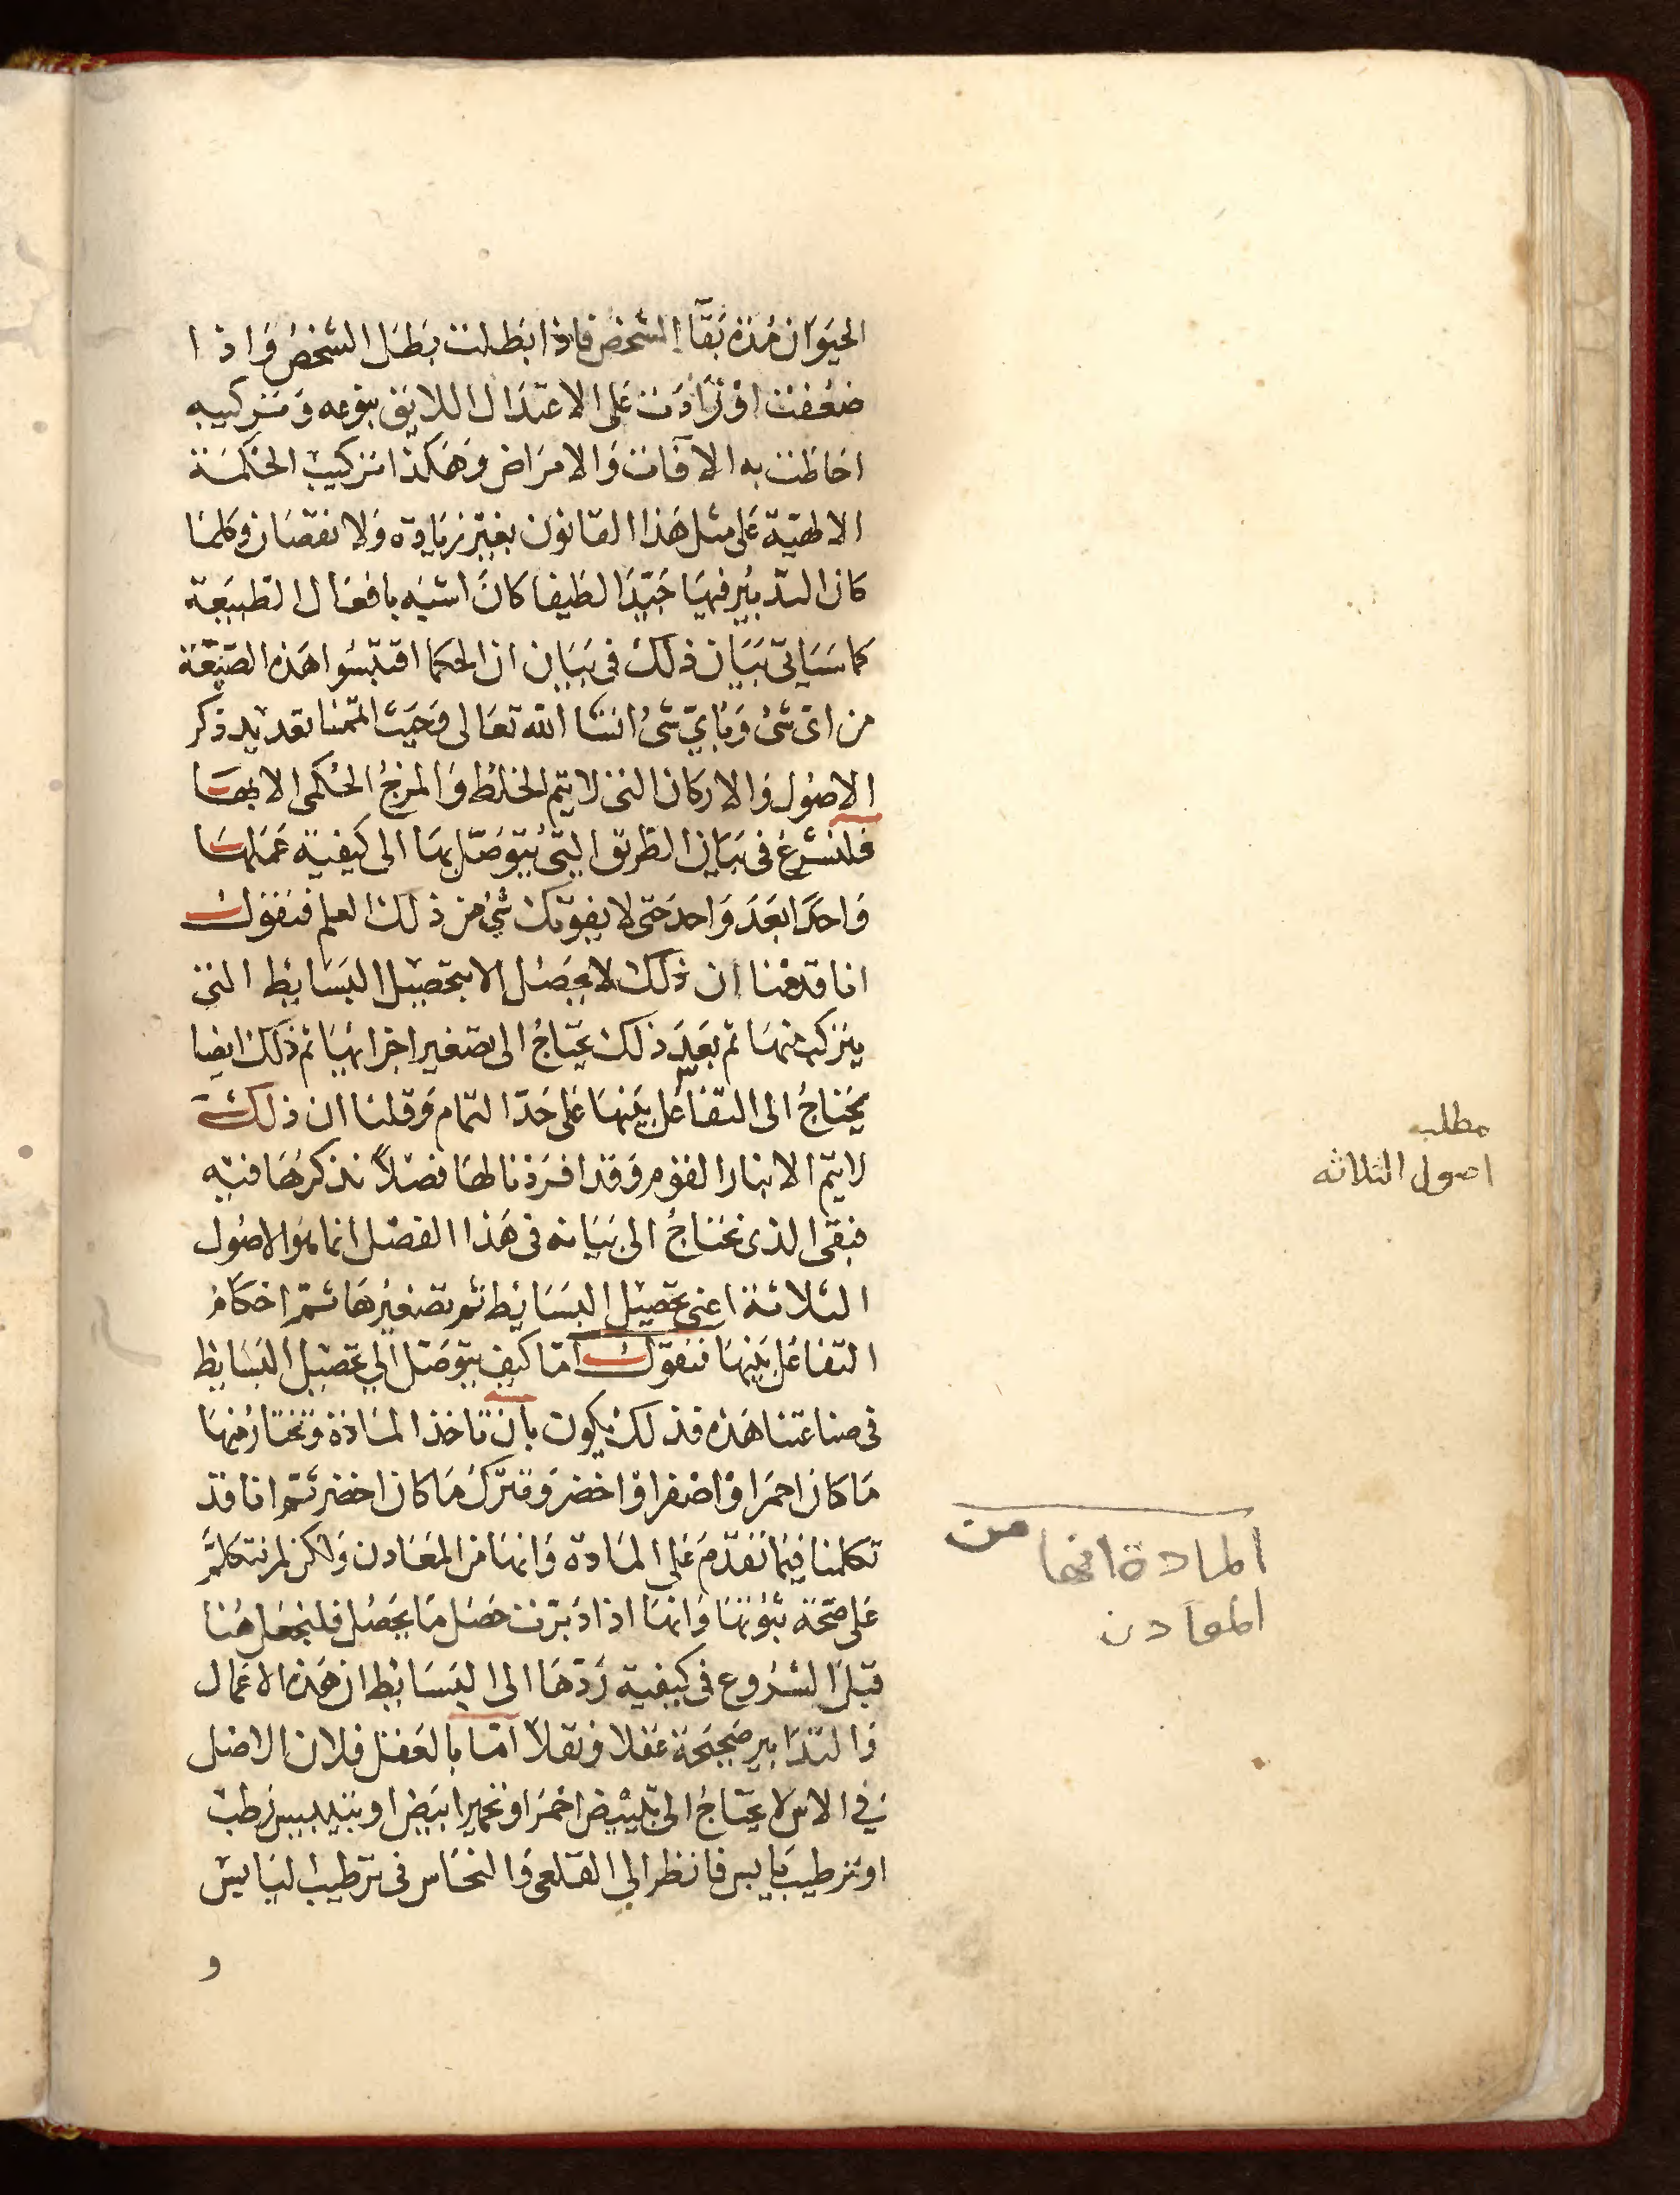 الحيوان مدة بقاء الشخص فاذا بطلت بطل الشخص واذا
ضعفت او زادت على الاعتدال اللايق بنوعه وتركيبه
احاطت به الآفات والامراض وهكذا تركيب الحكمة
الالهية على مثل هذا القانون بغير زيادة ولا نقصان وكلما
كان التدبير فيها جيدا لطيفا كان اشبه بافعال الطبيعة
كما سياتي بيان ذلك في بيان ان الحكما اقتبسوا هذه الصنعة
من اي شئ وباي شئ انشا الله تعالى وحيث اتممنا تعديد ذكر
الاصول والاركان التي لا يتم الخلط والمزج الحكمى الا بها
فلنشرع في بيان الطريق التي يتوصل بها الى كيفية عملها
واحدا بعد واحد حتى لا يفوتك شئ من ذلك العلم فنقول
انا قدمنا ان ذلك لا يحصل الا بتحصيل البسايط التي
يتركب منها ثم بعد ذلك يحتاج الى تصغير اجزائها ثم ذلك ايضا
يحتاج الى التفاعل بينها على حد التمام وقلنا ان ذلك
لا يتم الا بنار القوم وقد افردنا لها فصلاً نذكرها فيه
فبقي الذي نحتاج الى بيانه في هذا الفصل انما هو الاصول
الثلاثة اعنى تحصيل البسايط ثم تصغيرها ثم احكام
التفاعل بينها فنقول اما كيف يتوصل الى تحصيل البسايط
في صناعتنا هذه فذلك يكون بان تاخذ المادة وتختار منها
ما كان احمر او اصفر او اخضر وتترك ما كان اخضر ثم انا قد
تكلمنا فيما تقدم على المادة وانها من المعادن ولاكن لم نتكلم
على صحة ثبوتها وانها اذا دبرت حصل ما يحصل فلنجعل هنا
قبل الشروع في كيفية ردها الى البسايط ان هذه الاعمال
والتدابير صحيحة عقلا ونقلا اما بالعقل فلان الاصل
في الاس لا يحتاج الى تبييض احمر او تحمير ابيض او تيبيس رطب
او ترطيب يابس فانظر الى القلعى والنحاس في ترطيب اليابس
و
مطلب
اصول الثلاثه
المادة انها من
المعادن